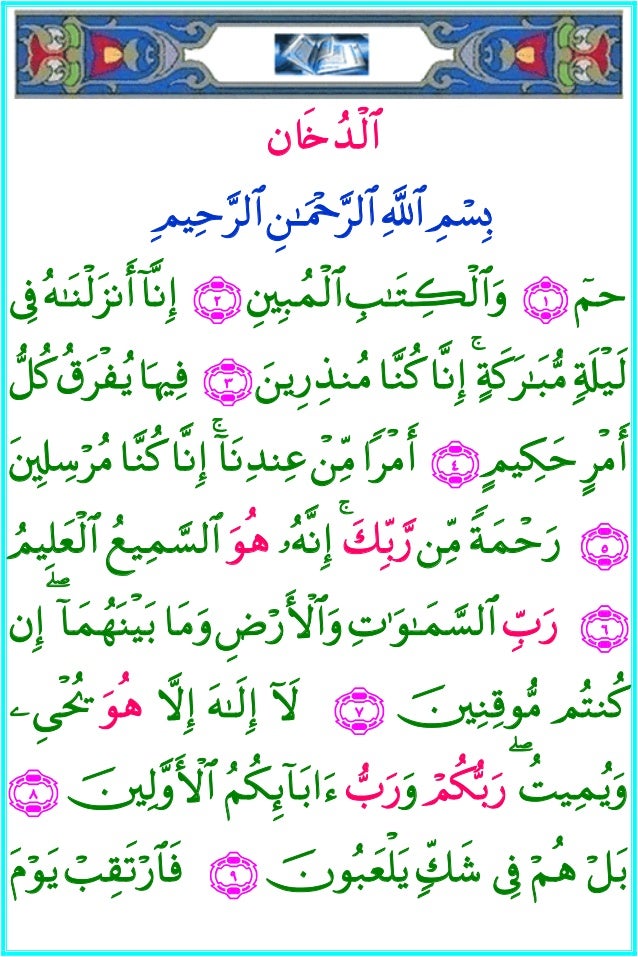 ٱلْدُخَان
بِسْمِ ٱللَّهِ ٱلرَّحْمَـٰنِ ٱلرَّحِيمِ
حمٓ ١ وَٱلْكِتَـٰبِ ٱلْمُبِينِ ٢ إِنَّآ أَنزَلْنَـٰهُ فِى
لَيْلَةٍ مُّبَـٰرَكَةٍ ۚ إِنَّا كُنَّا مُنذِرِينَ ٣ فِيهَا يُفْرَقُ كُلُّ
أَمْرٍ حَكِيمٍ ٤ أَمْرًا مِّنْ عِندِنَآ ۚ إِنَّا كُنَّا مُرْسِلِينَ
٥ رَحْمَةً مِّن رَّبِّكَ ۚ إِنَّهُۥ هُوَ ٱلسَّمِيعُ ٱلْعَلِيمُ
٦ رَبِّ ٱلسَّمَـٰوَٰتِ وَٱلْأَرْضِ وَمَا بَيْنَهُمَآ ۖ إِن
كُنتُم مُّوقِنِينَ ٧ لَآ إِلَـٰهَ إِلَّا هُوَ يُحْىِۦ
وَيُمِيتُ ۖ رَبُّكُمْ وَرَبُّ ءَابَآئِكُمُ ٱلْأَوَّلِينَ ٨
بَلْ هُمْ فِى شَكٍّ يَلْعَبُونَ ٩ فَٱرْتَقِبْ يَوْمَ